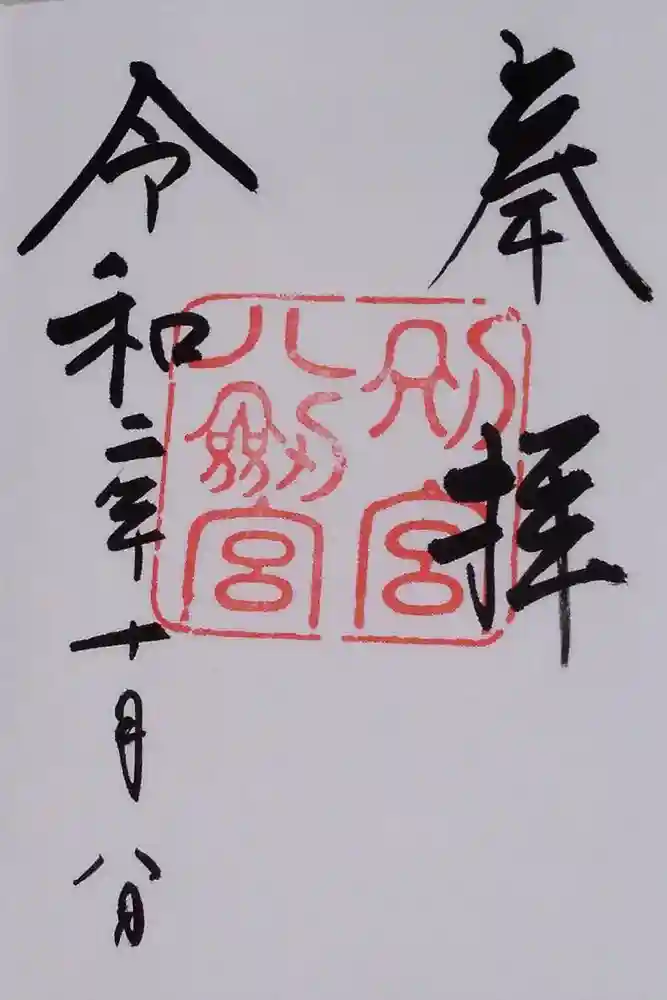 奉拝
別宮
八剱宮
令和二年十月八日